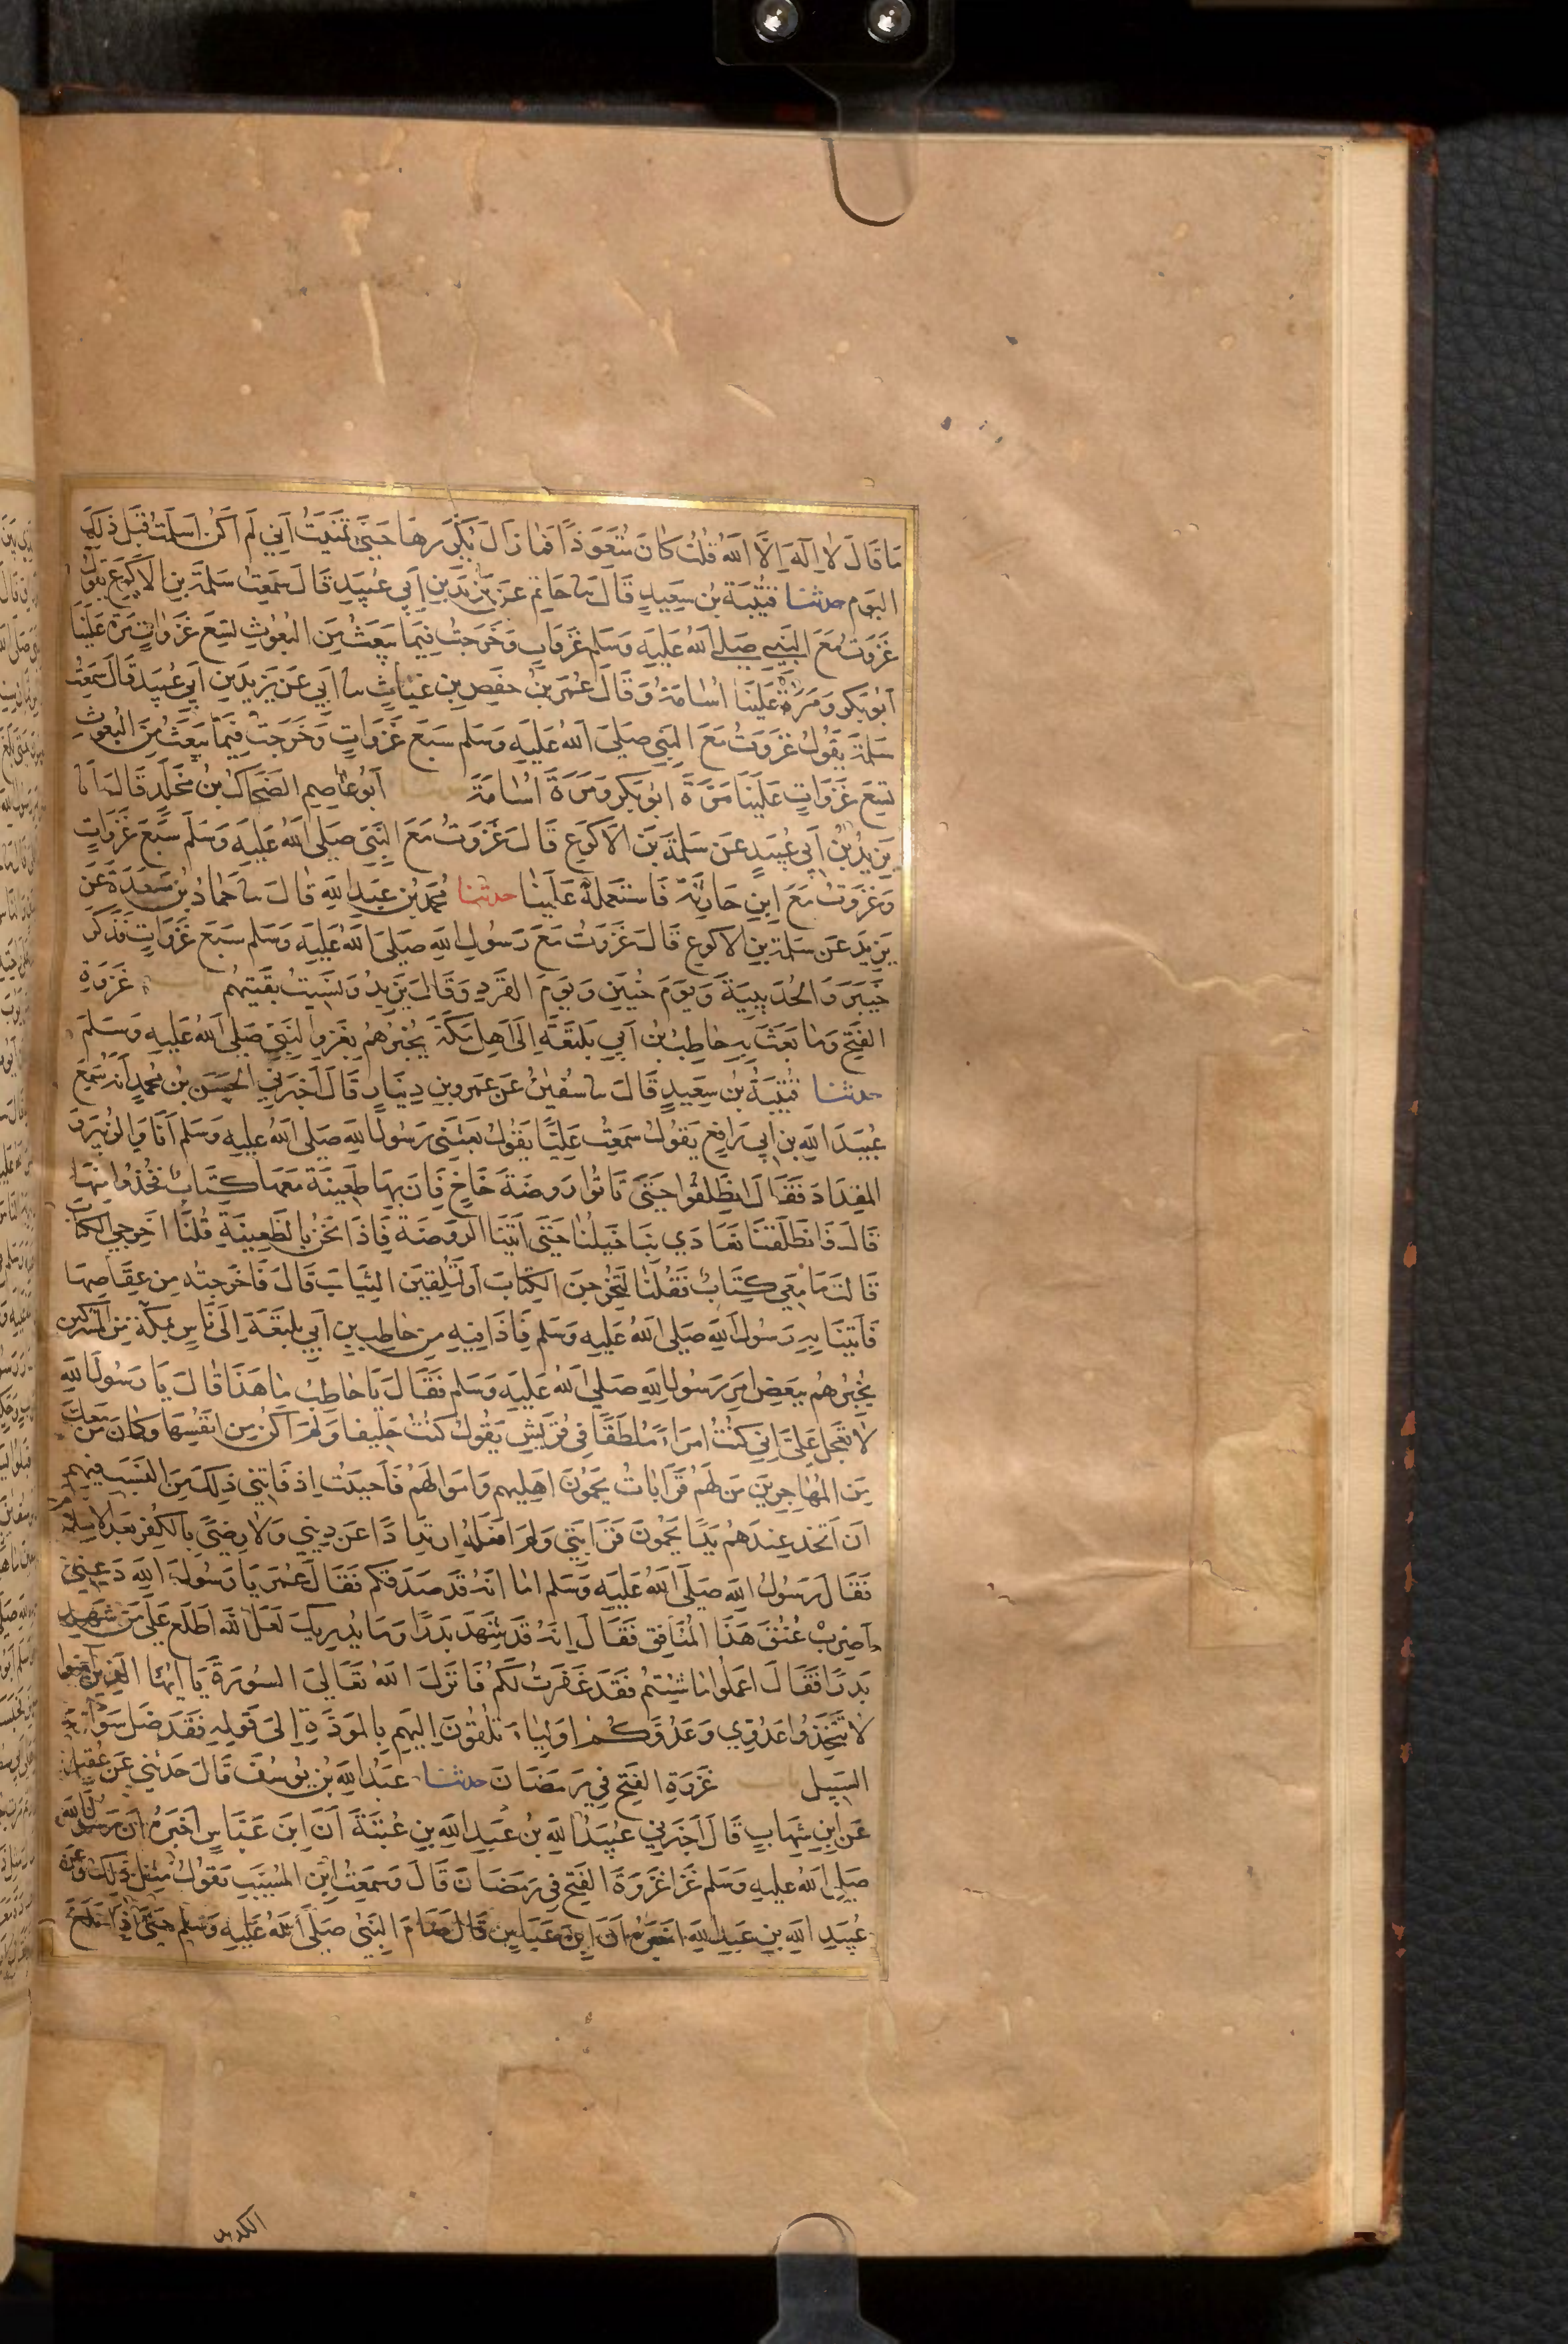 مَا قَالَ لَا اِلَهَ اِلَّا اللهُ قُلتُ كَانَ مُتَعَوِّذًا فَمَا زَالَ يُكَرِّرهَا حَتَّى تَمَنَّيتُ اَنِّي لَم اَكُن اَسلَمتُ قَبلَ ذَلِكَ
اليَوم حدثنا قُتَيبَة بنُ سَعِيدٍ قَالَ سا حَاتِم عَن يَزِيدَ بنِ اَبِي عُبَيدٍ قَالَ سَمِعتُ سَلمَةَ بنِ الاَكوَعِ يَقُولُ
غَزَوتُ مَعَ النَبِي صَلى اللهُ عَليهِ وَسَلم غَزَواتٍ وَخَرَجتُ فِيمَا يَبعَثُ مِنَ البُعُوثِ تِسعَ غَزَواتٍ مَرة عَلَينَا
اَبُو بَكرٍ وَمَرَةً عَلَينَا اُسَامَةُ وَقَالَ عُمَرَ بنُ حَفصِ بنِ غيَاثٍ سا اَبِي عَن يَزِيدَ بنِ اَبِي عُبَيدٍ قَالَ سَمِعتُ
سَلمَةَ يَقُولُ غَزَوتُ مَعَ النَبِي صَلى اللهُ عَليهِ وَسَلم سَبعَ غَزَواتٍ وَخَرَجتُ فِيمَا يَبعَثُ مِنَ البُعُوثِ
تِسعَ غَزَوَاتٍ عَلَينَا مَرَّةً اَبُو بَكر وَمَرَةً اُسَامَةَ اَبُو عَاصِم الضَحَاكُ بنُ مَخلَدٍ قَالَ اَنا
يَزِيدُ بنُ اَبِي عُبَيدٍ عَن سَلمَةَ بن الاَكوَعِ قَالَ غَزَوتُ مَعَ النَبِي صَلى اللهُ عَليهِ وَسَلم سَبعَ غَزَواتٍ
وَغَزَوتُ مَعَ اِبنِ حَارِثَةَ فَاستَعمَلهُ عَلَينَا حدثنا مُحَمدُ بن عَبدِ اللهِ قَالَ سا حَمادُ بنُ مَسعَدَةَ عَن
يَزِيدَ عَن سَلمَةَ بنِ الاَكوع قَالَ غَزَوتُ مَعَ رَسُولِ اللهِ صَلى اللهُ عَليهِ وَسَلم سَبعَ غَزَوَاتٍ فَذَكَرَ
خَيبَرَ وَالحُدَيبِيَةَ وَيَومَ حُنَينٍ وَيَومَ القَرَدِ وَقَالَ يَزِيدُ وَنَسِيتُ بَقيَتهُم باب غَزوَةِ
الفَتحِ وَمَا بَعَثَ بِهِ حَاطِبُ بنُ اَبِي بَلتَعَةَ اِلَى اَهلِ مَكَةَ يُخبِرُهُم بِغَزوِ النَبِيِّ صَلى اللهُ عَليهِ وَسَلمَ
حدثنا قُتَيبَةُ بنُ سَعِيدٍ قَالَ سا سُفيٰنُ عَن عَمرو بنِ دِينَارٍ قَالَ اَخبَرَنِي الحَسَن بنُ مُحمدٍ اَنهُ سَمِعَ
عُبَيدَ اللهِ بنِ اَبِي رَافِعٍ يَقُولُ سَمِعتُ عَلِيًّا يَقُولُ بَعَثَنِي رَسُولُ اللهِ صَلى اللهُ عَليهِ وَسَلم اَنَا وَالزُبَيرَ وَ
المِقدَادَ فَقَالَ انطَلِقُوا حَتَّى تَاتُوا رَوضَةَ خَاخٍ فَاِن بِهَا ظَعِينَةً مَعَهَا كِتَابٌ فَخُذُوا مِنهَا
قَالَ فَانطَلَقنَا تَعَادَي بِنَا خَيلُنَا حَتَّى اَتَينَا الرَوضَة فَاِذَا نَحنُ بِالظَعِينَةِ قُلنَا اَخرِجِي الكِتَاب
قَالَت مَا مَعِي كِتَابٌ فَقُلنَا لَتُخرِجنَ الكِتَابَ اَو لَنُلقِيَن الثِيَابَ قَالَ فَاَخرَجَتهُ مِن عِقَاصِهَا
فَاَتَينَا بِهِ رَسُولَ اللهِ صَلى اللهُ عَليهِ وَسَلم فَاِذَا فِيهِ مِن حَاطِبِ بنِ اَبِي بَلتَعَةَ اِلَى نَاسٍ بِمَكة مِنَ المُشرِكِين
يُخبِرُهُم بِبَعضِ اَمرِ رَسُولِ اللهِ صَلى اللهُ عَليهِ وَسَلم فَقَالَ يَا حَاطِبُ مَا هَذَا قَالَ يَا رَسُولَ اللهِ
لَا تَعجَل عَلَيَّ اِنِي كُنتُ امرَاءً مُلصَقًا فِي قُرَيشٍ يَقُولُ كُنتُ حَلِيفًا وَلَم اَكُن مِن اَنفُسِهَا وَكَانَ مَن مَعَكَ
مِنَ المُهَاجِرِينَ مَن لَهُم قَرَابَاتٌ يَحمُونَ اَهلِيهِم وَاَموَالَهُم فَاَحبَبتُ اِذ فَاتَنِي ذَلِكَ مِنَ النَسَبِ فِيهِم
اَن اَتَخِذ عِندَهُم يَدًا يَحمُونَ قَرَابَتِي وَلَم اَفعَلهُ ارتِدَادًا عَن دِينِي وَلَا رِضًى بِالكُفرِ بَعدَ الاِسلَامِ
فَقَالَ رَسُولُ اللهِ صَلَى اللهُ عَليهِ وَسَلم اَمَا اَنهُ قَد صَدَقَكم فَقَالَ عُمَر يَا رَسُولَ اللهِ دَعنِي
اَضرِبْ عُنُقَ هَذَا المُنَافِقِ فَقَالَ اِنهُ قَد شَهِدَ بَدرًا وَمَا يُدرِيكَ لَعَلَ اللهَ اطَلَع عَلَى مَن شَهِدَ
بَدرًا فَقَالَ اعمَلُوا مَا شِئتُم فَقَد غَفَرتُ لَكُم فَاَنزَلَ اللهُ تَعَالَى السُورَةَ يَا اَيُهَا الَذِينَ آمَنُوا
لَا تَتَخِذُوا عَدُوِي وَعَدُوَكُم اَولِيَاءَ تُلقُونَ اِلَيهِم بِالمَوَدَةِ اِلَى قَولِهِ فَقَد ضَلَ سَوَاءَ
السَبِيل باب غَزوَةِ الفَتحِ فِي رَمَضَانَ حدثنا عَبدُ اللهِ بنُ يُوسُفَ قَالَ حَدثَنِي عَن عُقَيل
عَن اِبنِ شِهَابٍ قَالَ اَخبَرَنِي عُبَيدُ اللهِ بنُ عَبدِ اللهِ بنِ عُتبَةَ اَنَ ابنَ عَبَاسٍ اَخبَرَهُ اَن رَسُولَ اللهِ
صَلى اللهُ عَليهِ وَسَلم غَزَا غَزوَةَ الفَتحِ فِي رَمَضَانَ قَالَ وَسَمِعتُ ابن المُسَيَبِ يَقُولُ مِثلَ ذَلِكَ وَعَن
عُبَيدِ اللهِ بنِ عَبدِ اللهِ اَخبَرَهُ اَنَ ابنَ عَبَاسٍ قَالَ صَامَ النَبِيُ صَلَى اللهُ عَليهِ وَسَلم حَتَى اِذَا بَلَغَ
الكديد